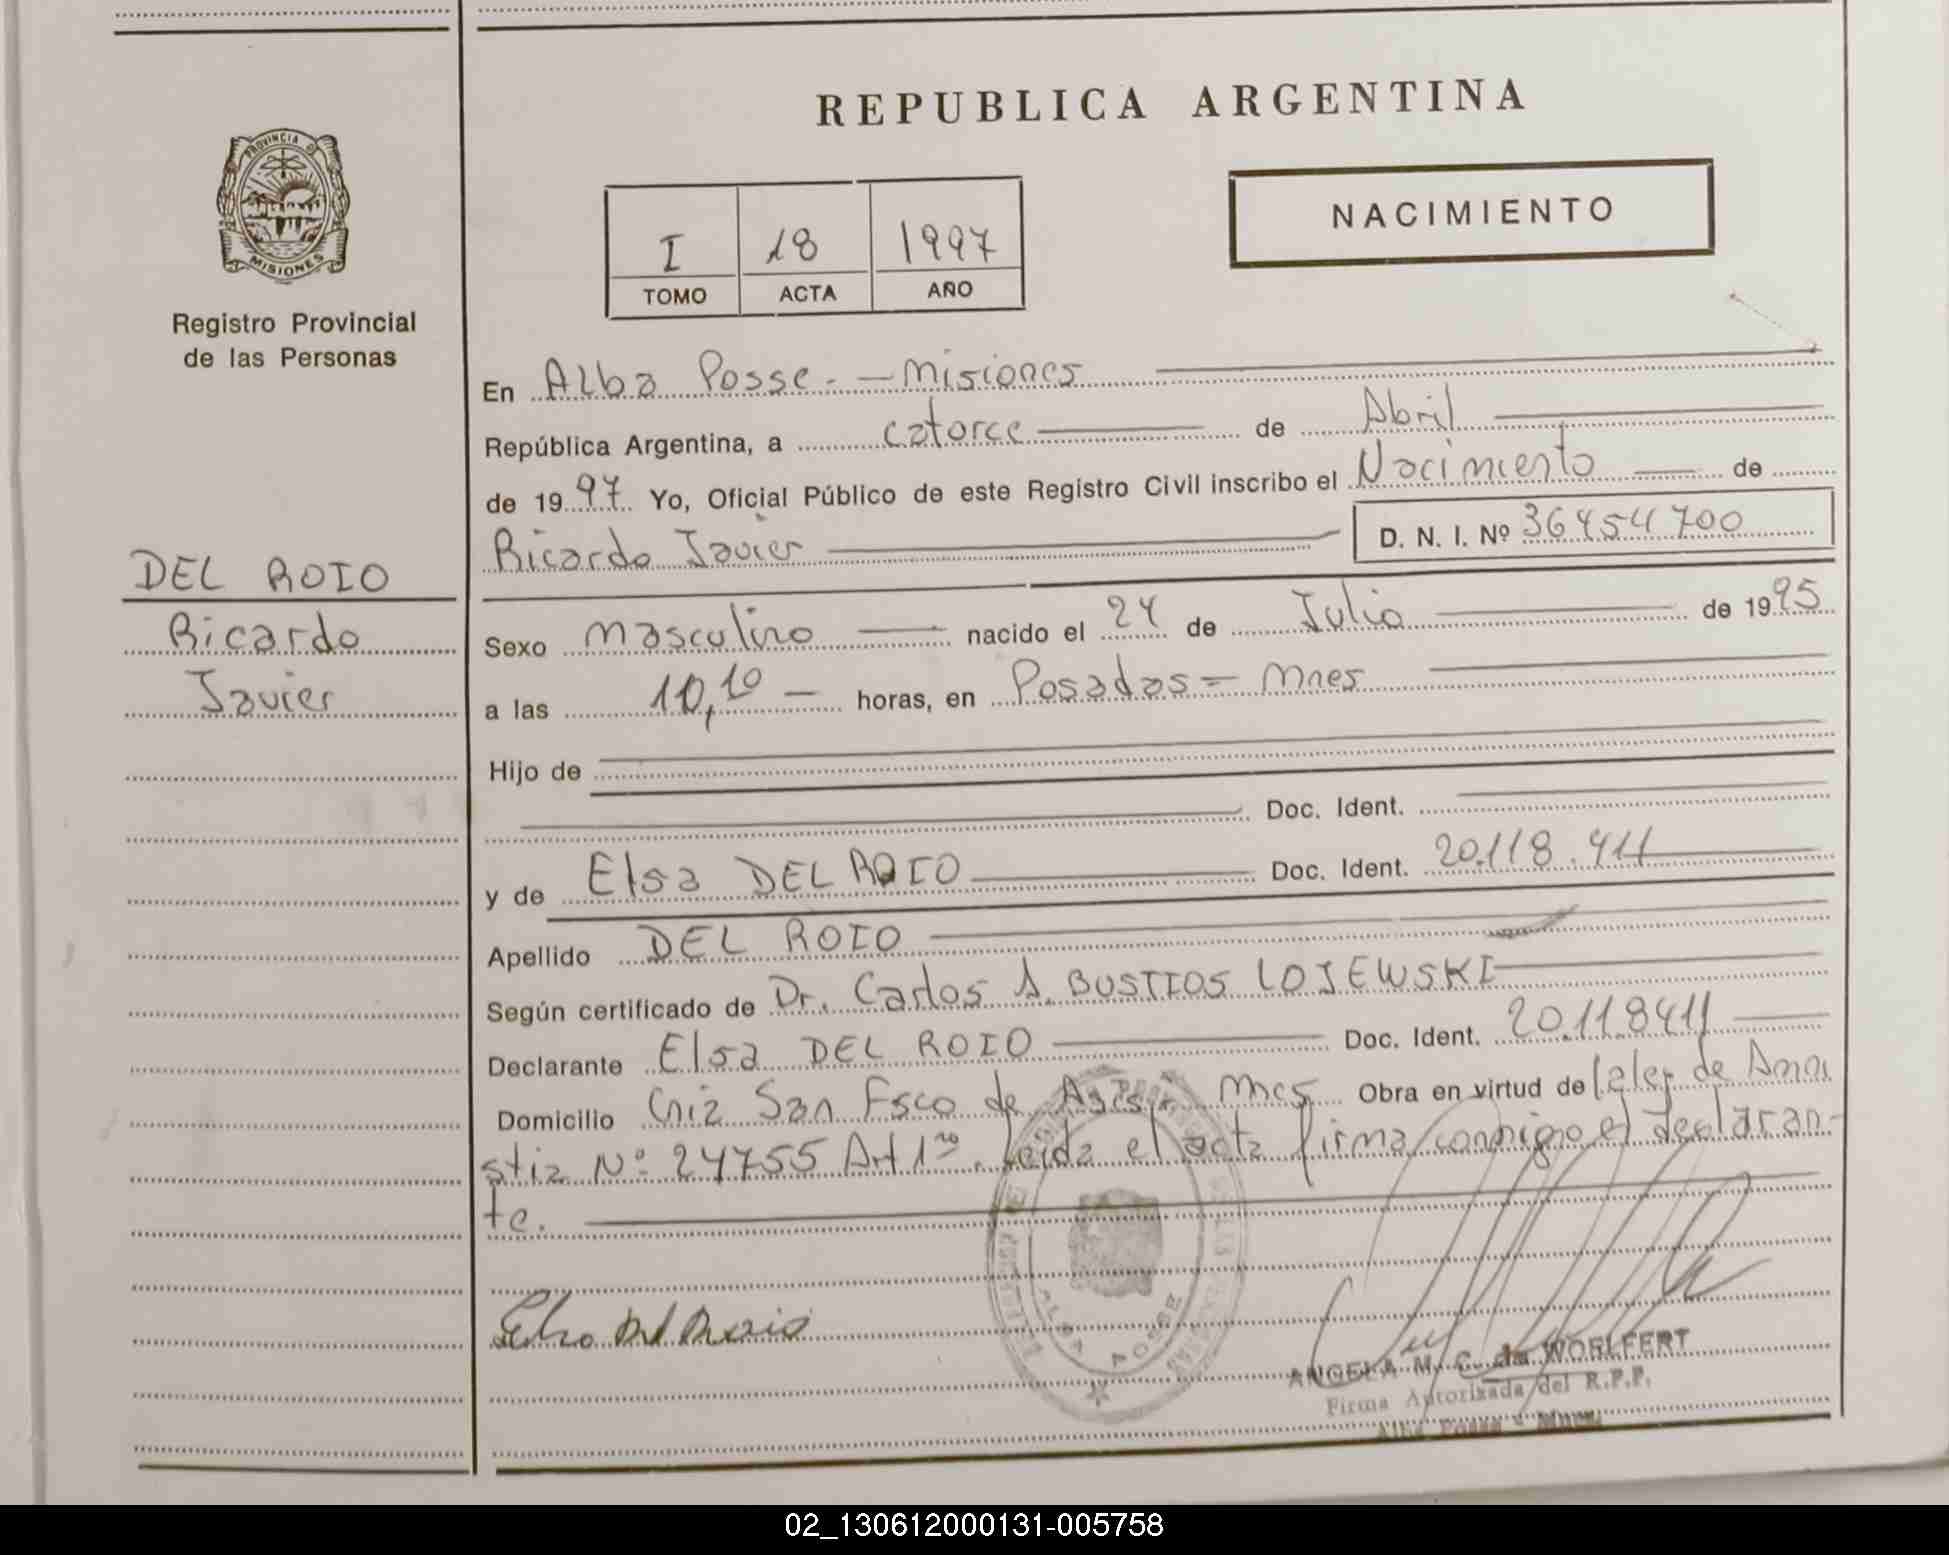 REPUBLICA ARGENTINA
PROVINCIA DE
MISIONES
Registro Provincial
de las Personas
I 18 1997
TOMO ACTA AÑO
NACIMIENTO
DEL ROIO
Ricardo
Javier
En Alba Posse - - Misiones
República Argentina, a catorce de Abril
de 1997 Yo, Oficial Público de este Registro Civil inscribo el Nacimiento de
Ricardo Javier D. N. I. Nº 36454700
Sexo masculino nacido el 24 de Julio de 1995
a las 10,10 horas, en Posadas = Mnes
Hijo de
Doc. Ident.
y de Elsa DEL ROIO Doc. Ident. 20.118.411
Apellido DEL ROIO
Según certificado de Dr. Carlos A. BUSTIOS LOJEWSKI
Declarante Elsa DEL ROIO Doc. Ident. 20.118411
Domicilio San Fsco de Asis Mnes Obra en virtud de la ley de Amni
stia Nº 24755 Art 1ro. Leida el acta firma conmigo el declaran-
te.
ALBA POSSE
ANGELA M. C. de WOELFERT
Firma Autorizada del R.P.P.
Alba Posse - Mnes.
02_130612000131-005758